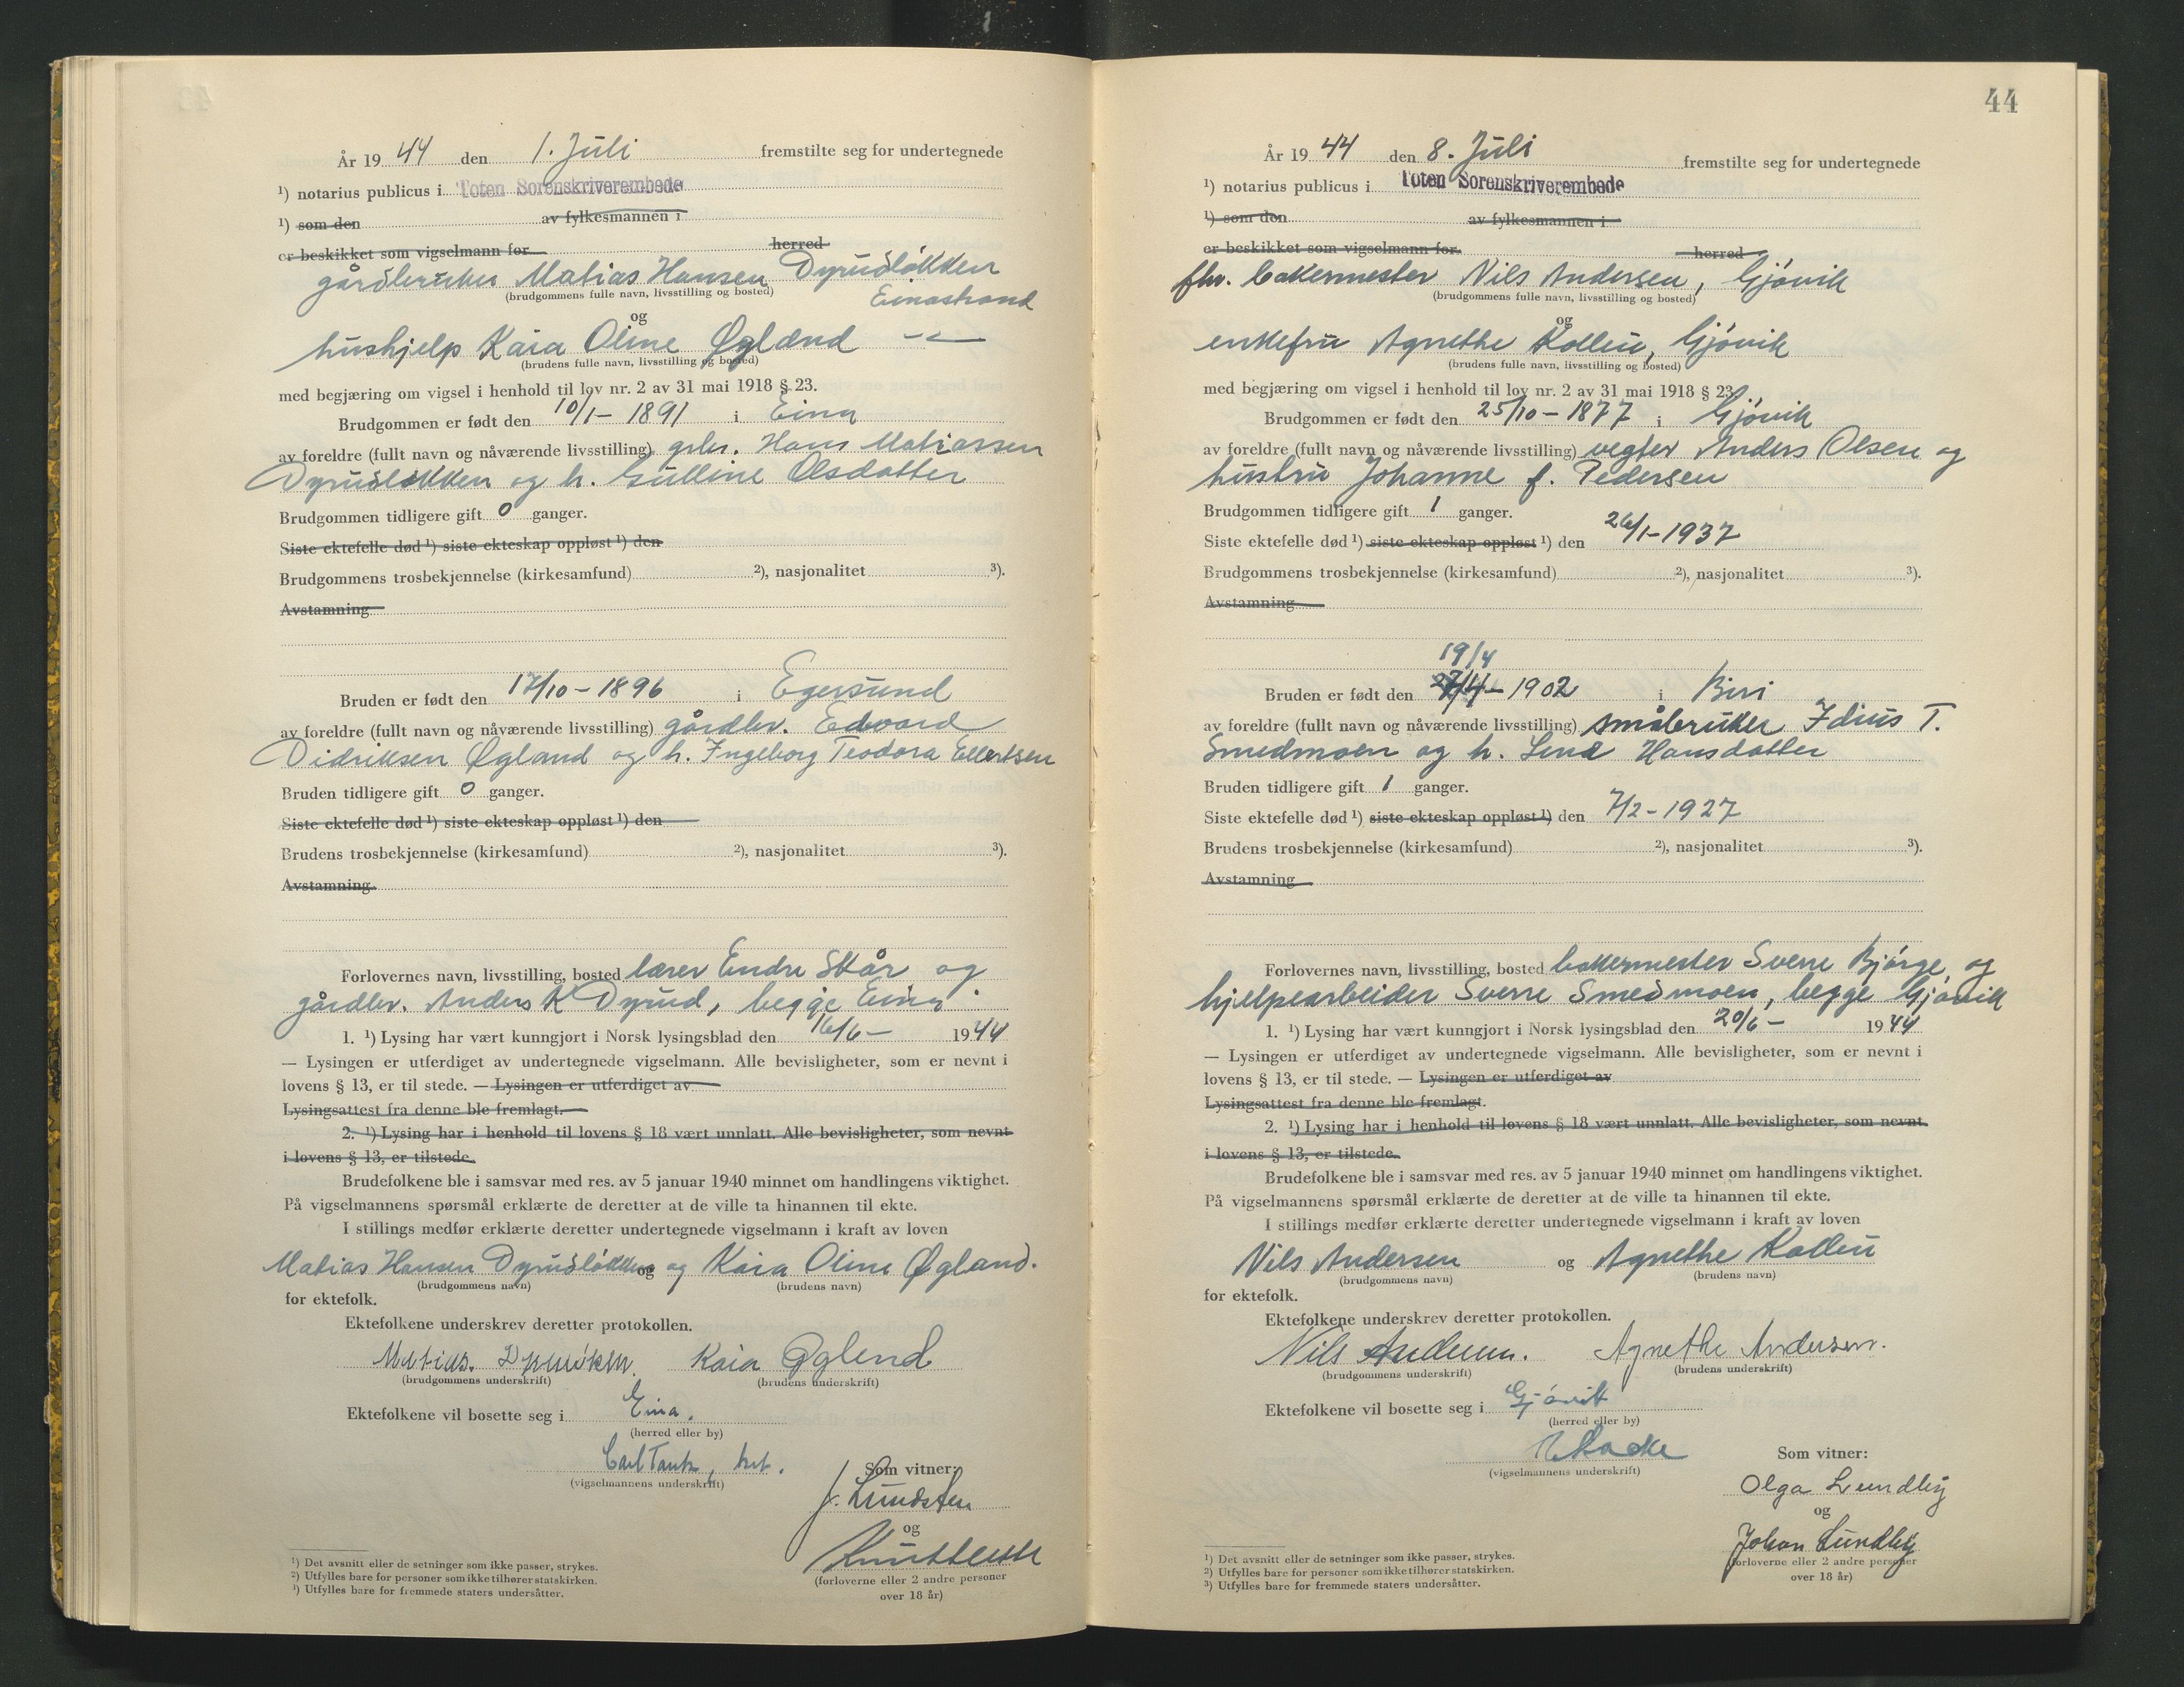 År 19 44 den 1. Juli fremstilte seg for undertegnede
¹) notarius publicus i Toten Sorenskriverembede
¹) som den av fylkesmannen i
er beskikket som vigselmann for herred
gårdbruker Matias Hansen Dyrudløkken
(brudgommens fulle navn, livsstilling og bosted) Einastrand
og
hushjelp Kaia Oline Øgland
(brudens fulle navn, livsstilling og bosted)
med begjæring om vigsel i henhold til lov nr. 2 av 31 mai 1918 § 23.
Brudgommen er født den 10/1 – 1891 i Eina
av foreldre (fullt navn og nåværende livsstilling) grbr. Hans Matiassen
Dyrudløkken og h. Gulline Olsdatter
Brudgommen tidligere gift 0 ganger.
Siste ektefelle død ¹) siste ekteskap oppløst ¹) den
Brudgommens trosbekjennelse (kirkesamfund) ²), nasjonalitet ³).
Avstamning
Bruden er født den 17/10 – 1896 i Egersund
av foreldre (fullt navn og nåværende livsstilling) gårdbr. Edvard
Didriksen Øgland og h. Ingeborg Teodora Ellertsen
Bruden tidligere gift 0 ganger.
Siste ektefelle død ¹) siste ekteskap oppløst ¹) den
Brudens trosbekjennelse (kirkesamfund) ²), nasjonalitet ³).
Avstamning
Forlovernes navn, livsstilling, bosted lærer Endre Skår og
gårdbr. Anders K Dyrud, begge Eina.
1. ¹) Lysing har vært kunngjort i Norsk lysingsblad den 16/6 – 1944
— Lysingen er utferdiget av undertegnede vigselmann. Alle bevisligheter, som er nevnt i
lovens § 13, er til stede. — Lysingen er utferdiget av
Lysingsattest fra denne ble fremlagt.
2. ¹) Lysing har i henhold til lovens § 18 vært unnlatt. Alle bevisligheter, som nevnt
i lovens § 13, er tilstede.
Brudefolkene ble i samsvar med res. av 5 januar 1940 minnet om handlingens viktighet.
På vigselmannens spørsmål erklærte de deretter at de ville ta hinannen til ekte.
I stillings medfør erklærte deretter undertegnede vigselmann i kraft av loven
Matias Hansen Dyrudløkken og og Kaia Oline Øgland.
(brudgommens navn) (brudens navn)
for ektefolk.
Ektefolkene underskrev deretter protokollen.
Matias Kaia Øglend
(brudgommens underskrift) (brudens underskrift)
Ektefolkene vil bosette seg i Eina.
(herred eller by)
Carl
(vigselmannens underskrift)
Som vitner:
J. Lundsten
og
(forloverne eller 2 andre personer
over 18 år)
¹) Det avsnitt eller de setninger som ikke passer, strykes.
²) Utfylles bare for personer som ikke tilhører statskirken.
¹) Utfylles bare for fremmede staters undersåtter.
44
År 19 44 den 8. Juli fremstilte seg for undertegnede
¹) notarius publicus i Toten Sorenskriverembede
¹) som den av fylkesmannen i
er beskikket som vigselmann for herred
fhv. bakermester Nils Andersen, Gjøvik
(brudgommens fulle navn, livsstilling og bosted)
og
enkefru Agnethe Kolleiu, Gjøvik
(brudens fulle navn, livsstilling og bosted)
med begjæring om vigsel i henhold til lov nr. 2 av 31 mai 1918 § 23.
Brudgommen er født den 25/10 – 1877 i Gjøvik
av foreldre (fullt navn og nåværende livsstilling) vegter Anders Olsen og
hustru Johanne f. Pedersen
Brudgommen tidligere gift 1 ganger.
Siste ektefelle død ¹) siste ekteskap oppløst ¹) den 26/1 – 1937
Brudgommens trosbekjennelse (kirkesamfund) ²), nasjonalitet ³).
Avstamning
19/4
Bruden er født den 27/4 – 1902 i Biri
av foreldre (fullt navn og nåværende livsstilling) småbruker Idius T.
Smedmoen og h. Lina Hansdatter
Bruden tidligere gift 1 ganger.
Siste ektefelle død ¹) siste ekteskap oppløst ¹) den 7/2 – 1927
Brudens trosbekjennelse (kirkesamfund) ²), nasjonalitet ³).
Avstamning
Forlovernes navn, livsstilling, bosted bakermester Sverre Bjørge, og
hjelpearbeider Sverre Smedmoen, begge Gjøvik
1. ¹) Lysing har vært kunngjort i Norsk lysingsblad den 20/6 – 1944
— Lysingen er utferdiget av undertegnede vigselmann. Alle bevisligheter, som er nevnt i
lovens § 13, er til stede. — Lysingen er utferdiget av
Lysingsattest fra denne ble fremlagt.
2. ¹) Lysing har i henhold til lovens § 18 vært unnlatt. Alle bevisligheter, som nevnt
i lovens § 13, er tilstede.
Brudefolkene ble i samsvar med res. av 5 januar 1940 minnet om handlingens viktighet.
På vigselmannens spørsmål erklærte de deretter at de ville ta hinannen til ekte.
I stillings medfør erklærte deretter undertegnede vigselmann i kraft av loven
Nils Andersen og Agnethe Kolleiu
(brudgommens navn) (brudens navn)
for ektefolk.
Ektefolkene underskrev deretter protokollen.
Nils Andersen. Agnethe Andersen.
(brudgommens underskrift) (brudens underskrift)
Ektefolkene vil bosette seg i Gjøvik
(herred eller by)
(vigselmannens underskrift)
Som vitner:
Olga Lundby
og
Johan Lundby
(forloverne eller 2 andre personer
over 18 år)
¹) Det avsnitt eller de setninger som ikke passer, strykes.
²) Utfylles bare for personer som ikke tilhører statskirken.
³) Utfylles bare for fremmede staters undersåtter.